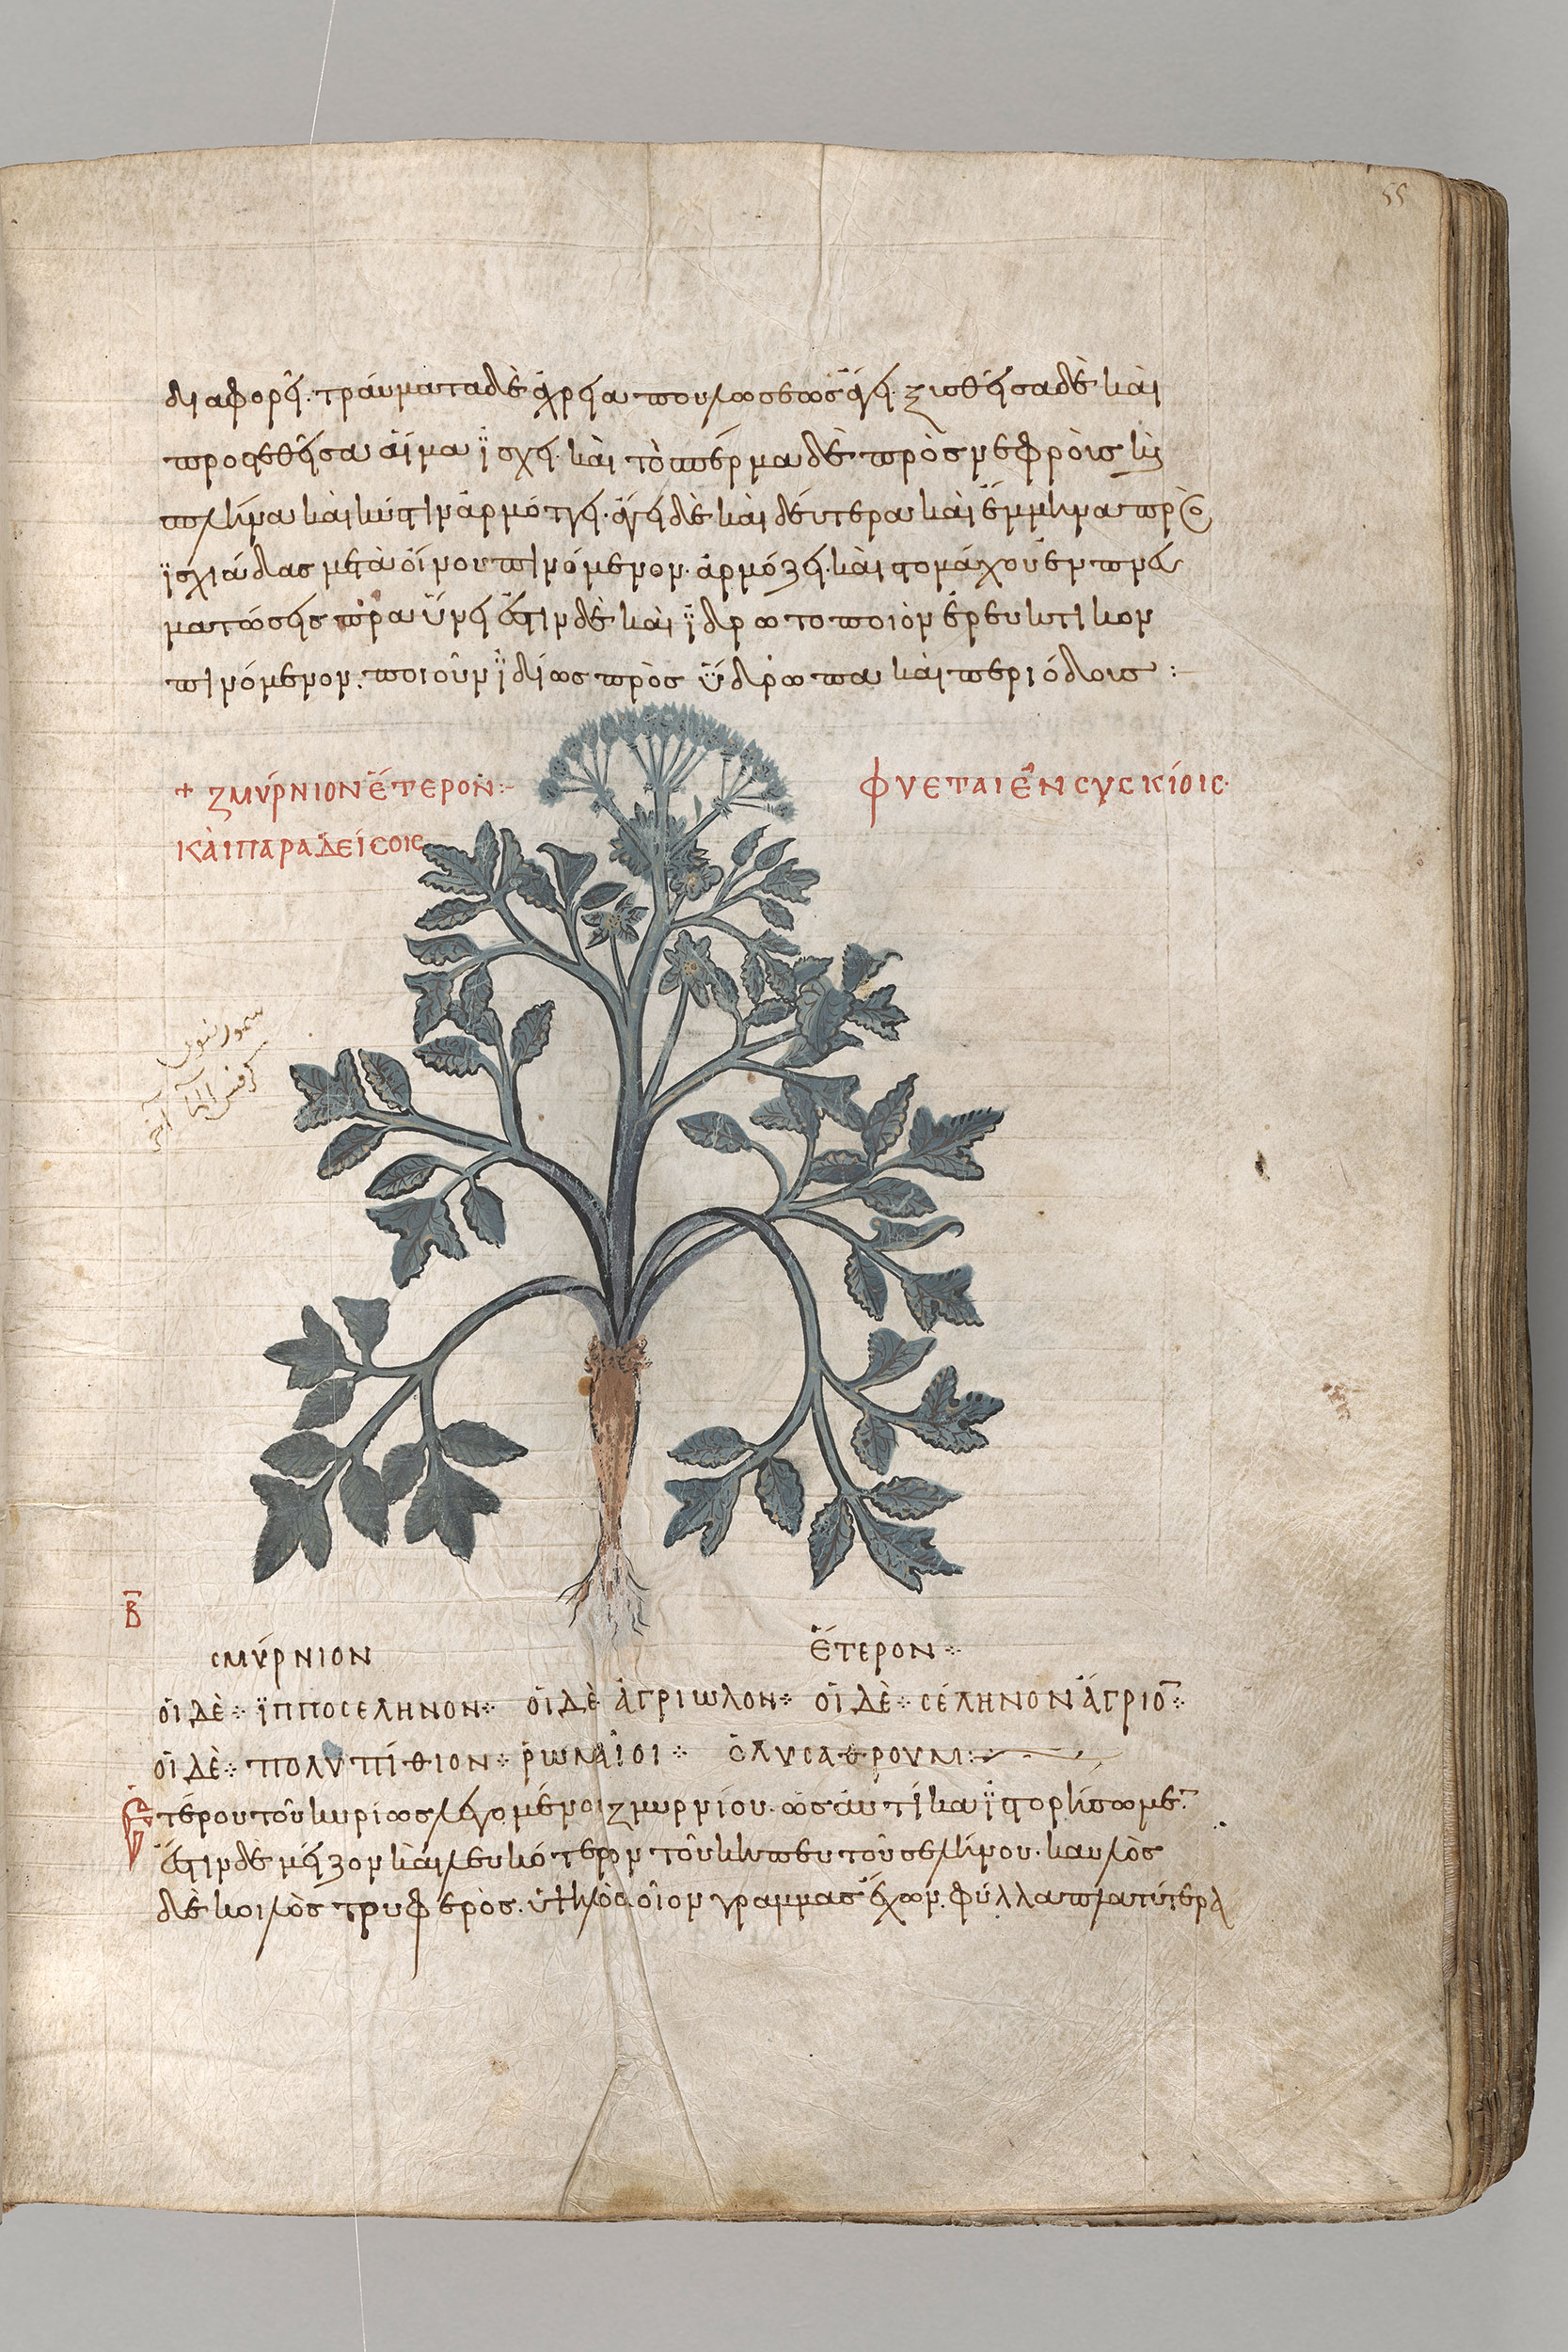 55
διαφορεῖ· τραύματα δὲ ἄχρει ἀπουλώσεως ἄγει· ξισθεῖσα δὲ καὶ
προστεθεῖσα αἷμα ἴσχει· καὶ τὸ σπέρμα δὲ πρὸς νεφροὺς καὶ
σπλῆνα καὶ κύστιν ἁρμόττει· ἄγει δὲ καὶ δεύτερα καὶ ἔμμηνα πρὸς
ἰσχιάδας μετὰ οἴνου πινόμενον· ἁρμόζει· καὶ στομάχου ἐνπνευ
ματώσεις πραΰνει ἔστιν δὲ καὶ ἱδρωτοποιὸν ἐρευκτικον
πινόμενον· ποιοῦν ἰδίως πρὸς ὕδρωπα καὶ περιόδους :
+ ΖΜΎΡΝΙΟΝ ἝΤΕΡΟΝ :- ΦΥΕΤΑΙ ἘΝ CΥCΚΊΟΙC·
ΚΑῚ ΠΑΡΑΔΕΊCΟΙC
سمورنيون
كرفس
Β
CΜΎΡΝΙΟΝ ἝΤΕΡΟΝ
ΟἹ ΔῈ ἹΠΠΟCΕΛΗΝΟΝ ΟἹ ΔῈ ἈΓΡΙΩΛΟΝ ΟἹ ΔῈ CΈΛΗΝΟΝ ἌΓΡΙΟΝ
ΟἹ ΔῈ ΠΟΛΥΠΊΘΙΟΝ ῬΩΜΑῖΟΙ ὈΛΥCΑΤΡΟΥΜ :
Ἑτέρου τοῦ κυρίως λεγομένου ζμυρνίου· ὡς αὐτίκα ἱστορήσωμεν
ἔστιν δὲ μεῖζον καὶ λευκότερον τοῦ κηπευτοῦ σελήνου· καυλὸς
δὲ κοιλὸς τρυφερὸς· ὑψηλὸς οἷον γραμμας ἔχων· φύλλα πλατύτερα